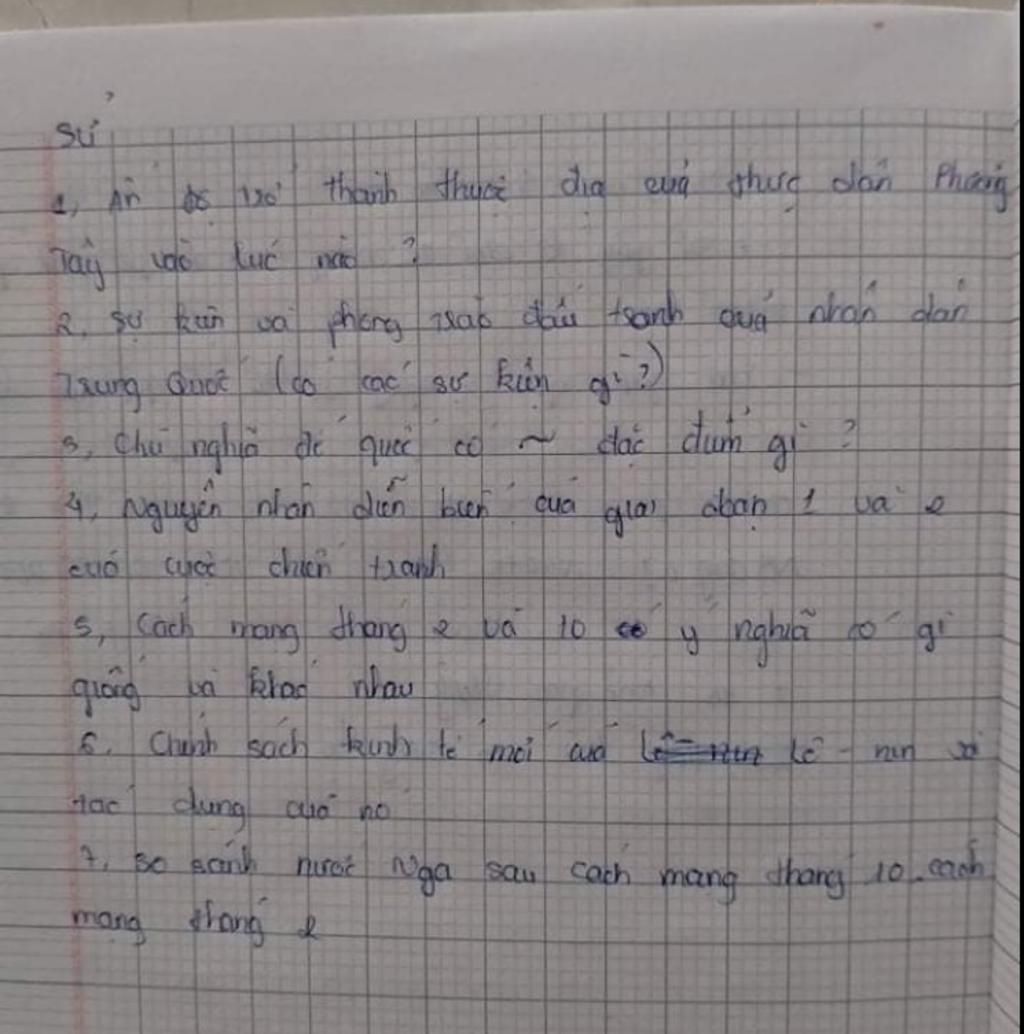 Sử
1, Ấn Độ trở thành thuộc địa của thực dân Phương
Tây vào lúc nào ?
2, Sự kiện và phong trào đấu tranh của nhân dân
Trung Quốc (có các sự kiện gì ?)
3, Chủ nghĩa đế quốc có ~ đặc điểm gì ?
4, Nguyên nhân diễn biến của giai đoạn 1 và 2
của cuộc chiến tranh
5, Cách mạng tháng 2 và 10 có ý nghĩa có gì
giống và khác nhau
6, Chính sách kinh tế mới của Lê - nin
tác dụng của nó
7, So sánh nước Nga sau cách mạng tháng 10 cách
mạng tháng 2